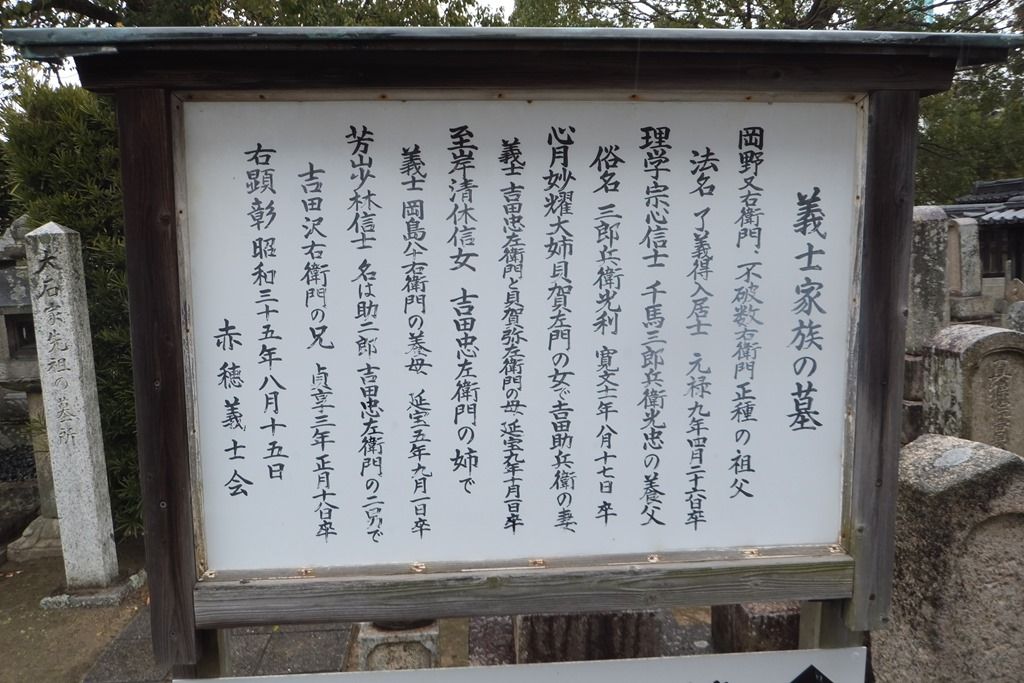 義士家族の墓
岡野又右衛門・不破数右衛門正種の祖父
法名 了義得入居士 元禄九年四月二十六日卒
理学宗心信士 千馬三郎兵衛光忠の養父
俗名 三郎兵衛光利 寛文十二年八月十七日卒
心月妙耀大姉貝賀左門の女で吉田助兵衛の妻
義士 吉田忠左衛門と貝賀弥左衛門の母 延宝九年十月一日卒
至岸清休信女 吉田忠左衛門の姉で
義士 岡島八十右衛門の養母 延宝五年九月一日卒
芳山少林信士 名は助二郎 吉田忠左衛門の二男で
吉田沢右衛門の兄 貞享三年正月十八日卒
右顕彰 昭和三十五年八月十五日
赤穂義士会
大石家先祖の墓所